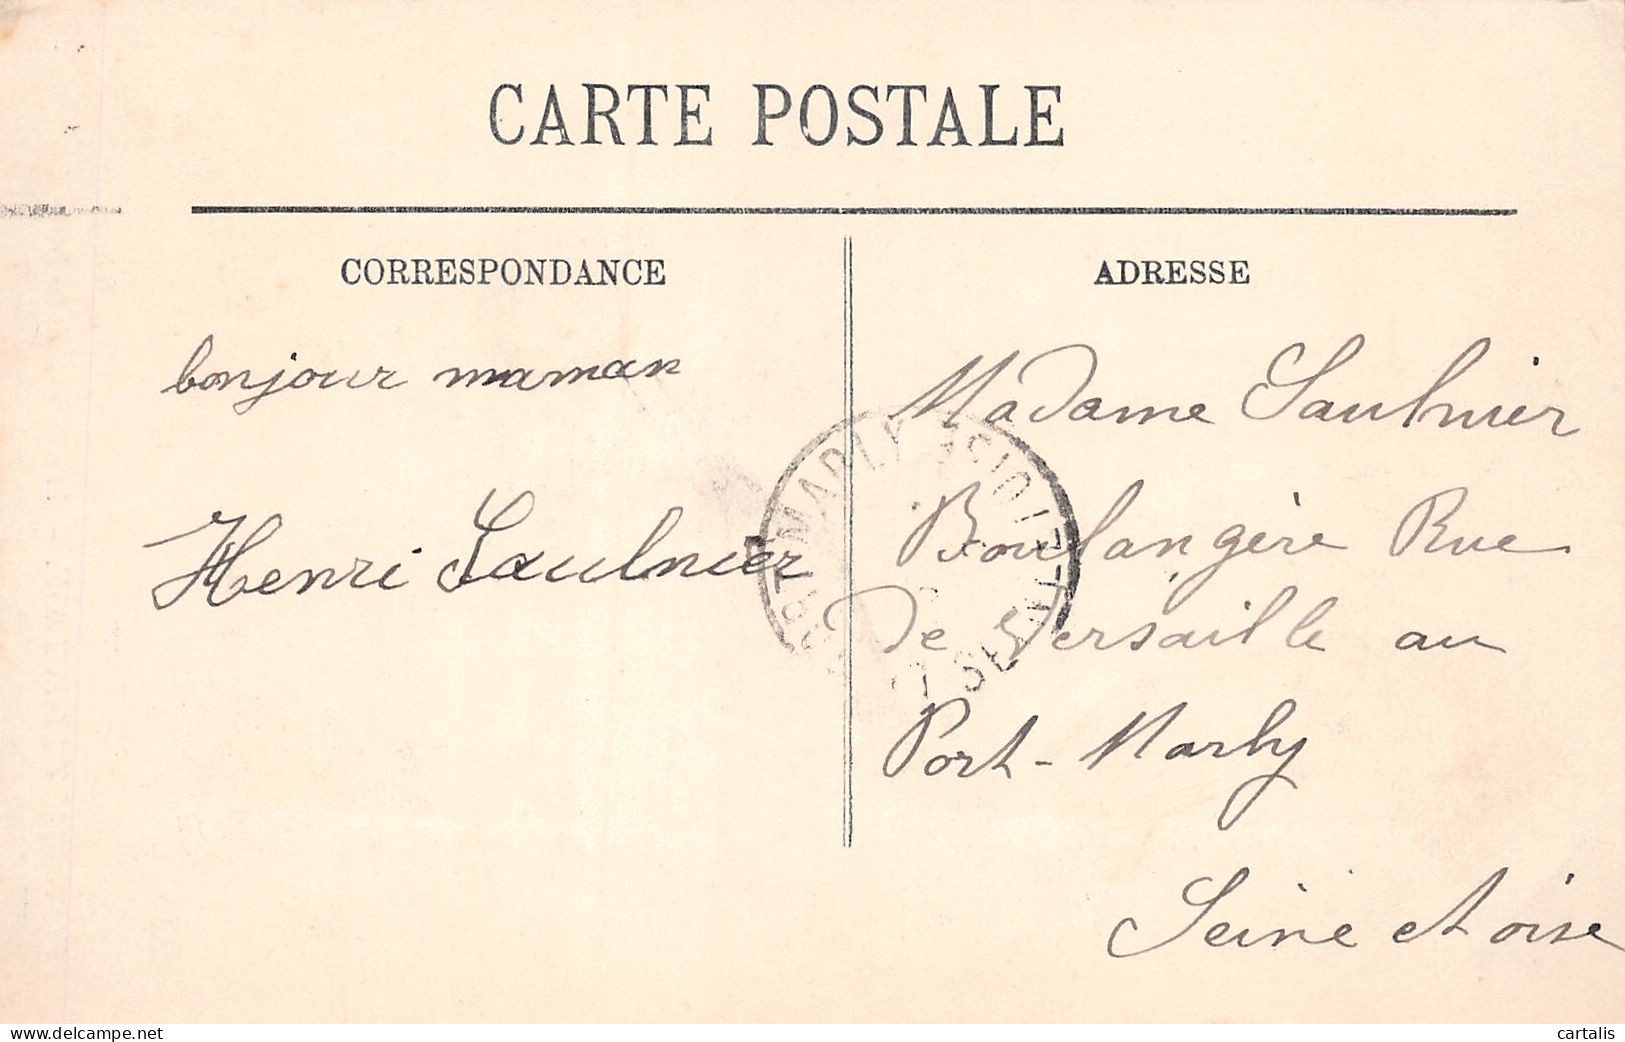 CARTE POSTALE
CORRESPONDANCE
bonjour maman
Henri Saulnier
ADRESSE
Madame Saulnier
Boulangère Rue
De Versaille au
Port-Marly
Seine et oise
PORT MARLY
SEINE-ET-OISE
www.delcampe.net
cartalis